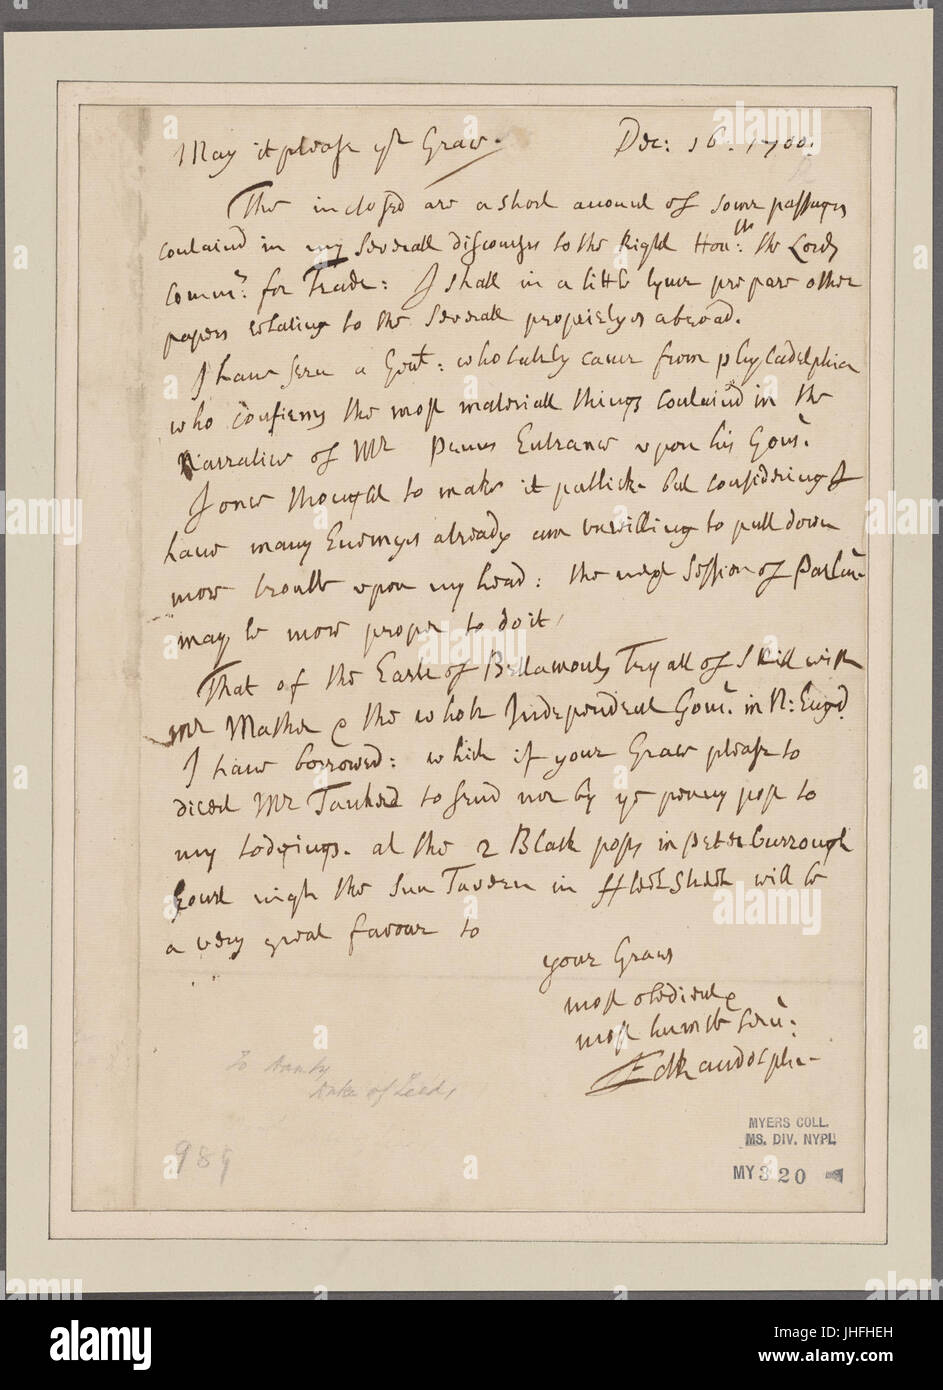 May it please yr Grace. Dec: 16. 1700.
The inclosed are a short account of some passages
containd in my severall discourses to the Right Honth: the Lords
Commrs: for Trade: I shall in a little tyme prepare other
papers relating to the severall proprietyes abroad.
I have seen a Gent: who lately came from phyladelphia
who confirms the most materiall things containd in the
Narrative of Mr Penns Entrance upon his Govmt.
I once thought to make it publick but considering I
have many Enemyes already am unwilling to pull down
more trouble upon my head: the next Session of Parlmt
may be more proper to do it,
That of the Earle of Bellamonts Tryall of Skill with
mr Mather & the whole Independent Govmt. in N: Engd.
I have borrowed: which if your Grace please to
direct Mr to send me by ye penny post to
my Lodgings. at the 2 Black posts in peterburrough
Court nigh the Sun Tavern in ffleetstreet will be
a very great favour to
your Graces
most obedient &
most humble servt:
Ed Randolph
To
Duke of Leeds
989
MYERS COLL.
MS. DIV. NYPL
MY 3 20
alamy
a
alamy stock photo
JHFHEH